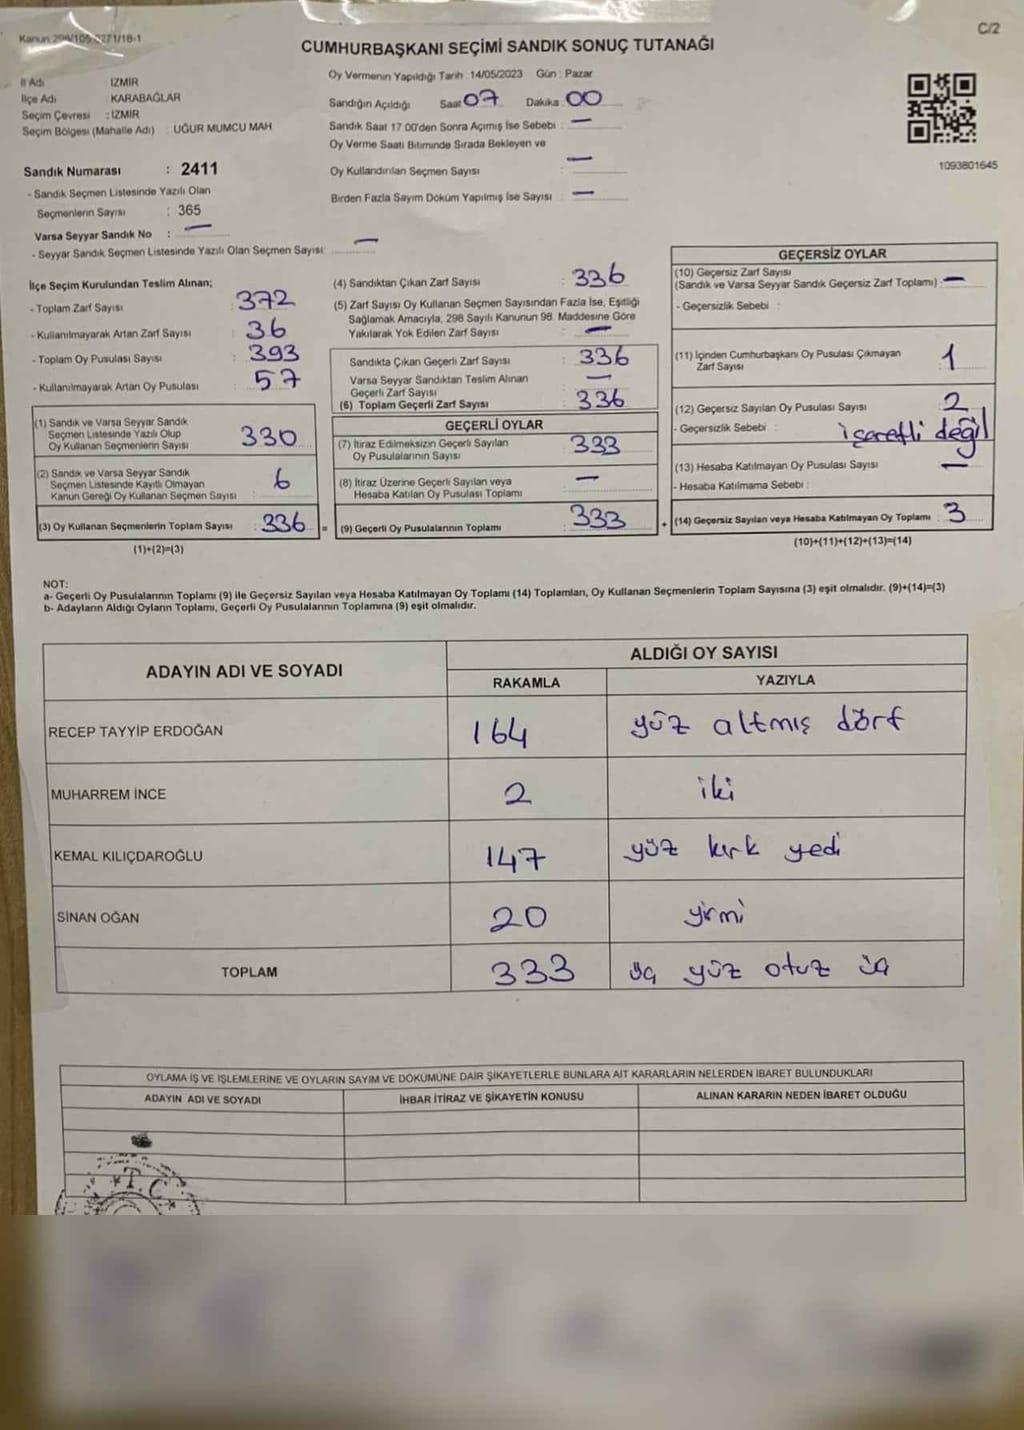 Kanun 298/105-0271/18-1
C/2
CUMHURBAŞKANI SEÇİMİ SANDIK SONUÇ TUTANAĞI
İl Adı : İZMİR
İlçe Adı : KARABAĞLAR
Seçim Çevresi : İZMİR
Seçim Bölgesi (Mahalle Adı) : UĞUR MUMCU MAH
Oy Vermenin Yapıldığı Tarih 14/05/2023 Gün : Pazar
Sandığın Açıldığı Saat 07 Dakika 00
Sandık Saat 17 00'den Sonra Açımış İse Sebebi : —
Oy Verme Saati Bitiminde Sırada Bekleyen ve
Oy Kullandırılan Seçmen Sayısı : —
Birden Fazla Sayım Döküm Yapılmış İse Sayısı : —
1093801645
Sandık Numarası : 2411
- Sandık Seçmen Listesinde Yazılı Olan
Seçmenlerin Sayısı : 365
Varsa Seyyar Sandık No : —
- Seyyar Sandık Seçmen Listesinde Yazılı Olan Seçmen Sayısı: —
İlçe Seçim Kurulundan Teslim Alınan;
- Toplam Zarf Sayısı : 372
- Kullanılmayarak Artan Zarf Sayısı : 36
- Toplam Oy Pusulası Sayısı : 393
- Kullanılmayarak Artan Oy Pusulası : 57
(1) Sandık ve Varsa Seyyar Sandık
Seçmen Listesinde Yazılı Olup
Oy Kullanan Seçmenlerin Sayısı : 330
(2) Sandık ve Varsa Seyyar Sandık
Seçmen Listesinde Kayıtlı Olmayan
Kanun Gereği Oy Kullanan Seçmen Sayısı : 6
(3) Oy Kullanan Seçmenlerin Toplam Sayısı : 336 =
(1)+(2)=(3)
(4) Sandıktan Çıkan Zarf Sayısı : 336
(5) Zarf Sayısı Oy Kullanan Seçmen Sayısından Fazla İse, Eşitliği
Sağlamak Amacıyla, 298 Sayılı Kanunun 98. Maddesine Göre
Yakılarak Yok Edilen Zarf Sayısı : —
Sandıkta Çıkan Geçerli Zarf Sayısı : 336
Varsa Seyyar Sandıktan Teslim Alınan
Geçerli Zarf Sayısı : —
(6) Toplam Geçerli Zarf Sayısı : 336
GEÇERLİ OYLAR
(7) İtiraz Edilmeksizin Geçerli Sayılan
Oy Pusulalarının Sayısı : 333
(8) İtiraz Üzerine Geçerli Sayılan veya
Hesaba Katılan Oy Pusulası Toplamı : —
(9) Geçerli Oy Pusulalarının Toplamı : 333 +
GEÇERSİZ OYLAR
(10) Geçersiz Zarf Sayısı
(Sandık ve Varsa Seyyar Sandık Geçersiz Zarf Toplamı) : —
- Geçersizlik Sebebi :
(11) İçinden Cumhurbaşkanı Oy Pusulası Çıkmayan
Zarf Sayısı : 1
(12) Geçersiz Sayılan Oy Pusulası Sayısı : 2
- Geçersizlik Sebebi : işaretli değil
(13) Hesaba Katılmayan Oy Pusulası Sayısı : —
- Hesaba Katılmama Sebebi :
(14) Geçersiz Sayılan veya Hesaba Katılmayan Oy Toplamı : 3
(10)+(11)+(12)+(13)=(14)
NOT:
a- Geçerli Oy Pusulalarının Toplamı (9) ile Geçersiz Sayılan veya Hesaba Katılmayan Oy Toplamı (14) Toplamları, Oy Kullanan Seçmenlerin Toplam Sayısına (3) eşit olmalıdır. (9)+(14)=(3)
b- Adayların Aldığı Oyların Toplamı, Geçerli Oy Pusulalarının Toplamına (9) eşit olmalıdır.
ADAYIN ADI VE SOYADI
ALDIĞI OY SAYISI
RAKAMLA YAZIYLA
RECEP TAYYİP ERDOĞAN 164 yüz altmış dört
MUHARREM İNCE 2 iki
KEMAL KILIÇDAROĞLU 147 yüz kırk yedi
SİNAN OĞAN 20 yirmi
TOPLAM 333 üç yüz otuz üç
OYLAMA İŞ VE İŞLEMLERİNE VE OYLARIN SAYIM VE DÖKÜMÜNE DAİR ŞİKAYETLERLE BUNLARA AİT KARARLARIN NELERDEN İBARET BULUNDUKLARI
ADAYIN ADI VE SOYADI İHBAR İTİRAZ VE ŞİKAYETİN KONUSU ALINAN KARARIN NEDEN İBARET OLDUĞU
T.C.